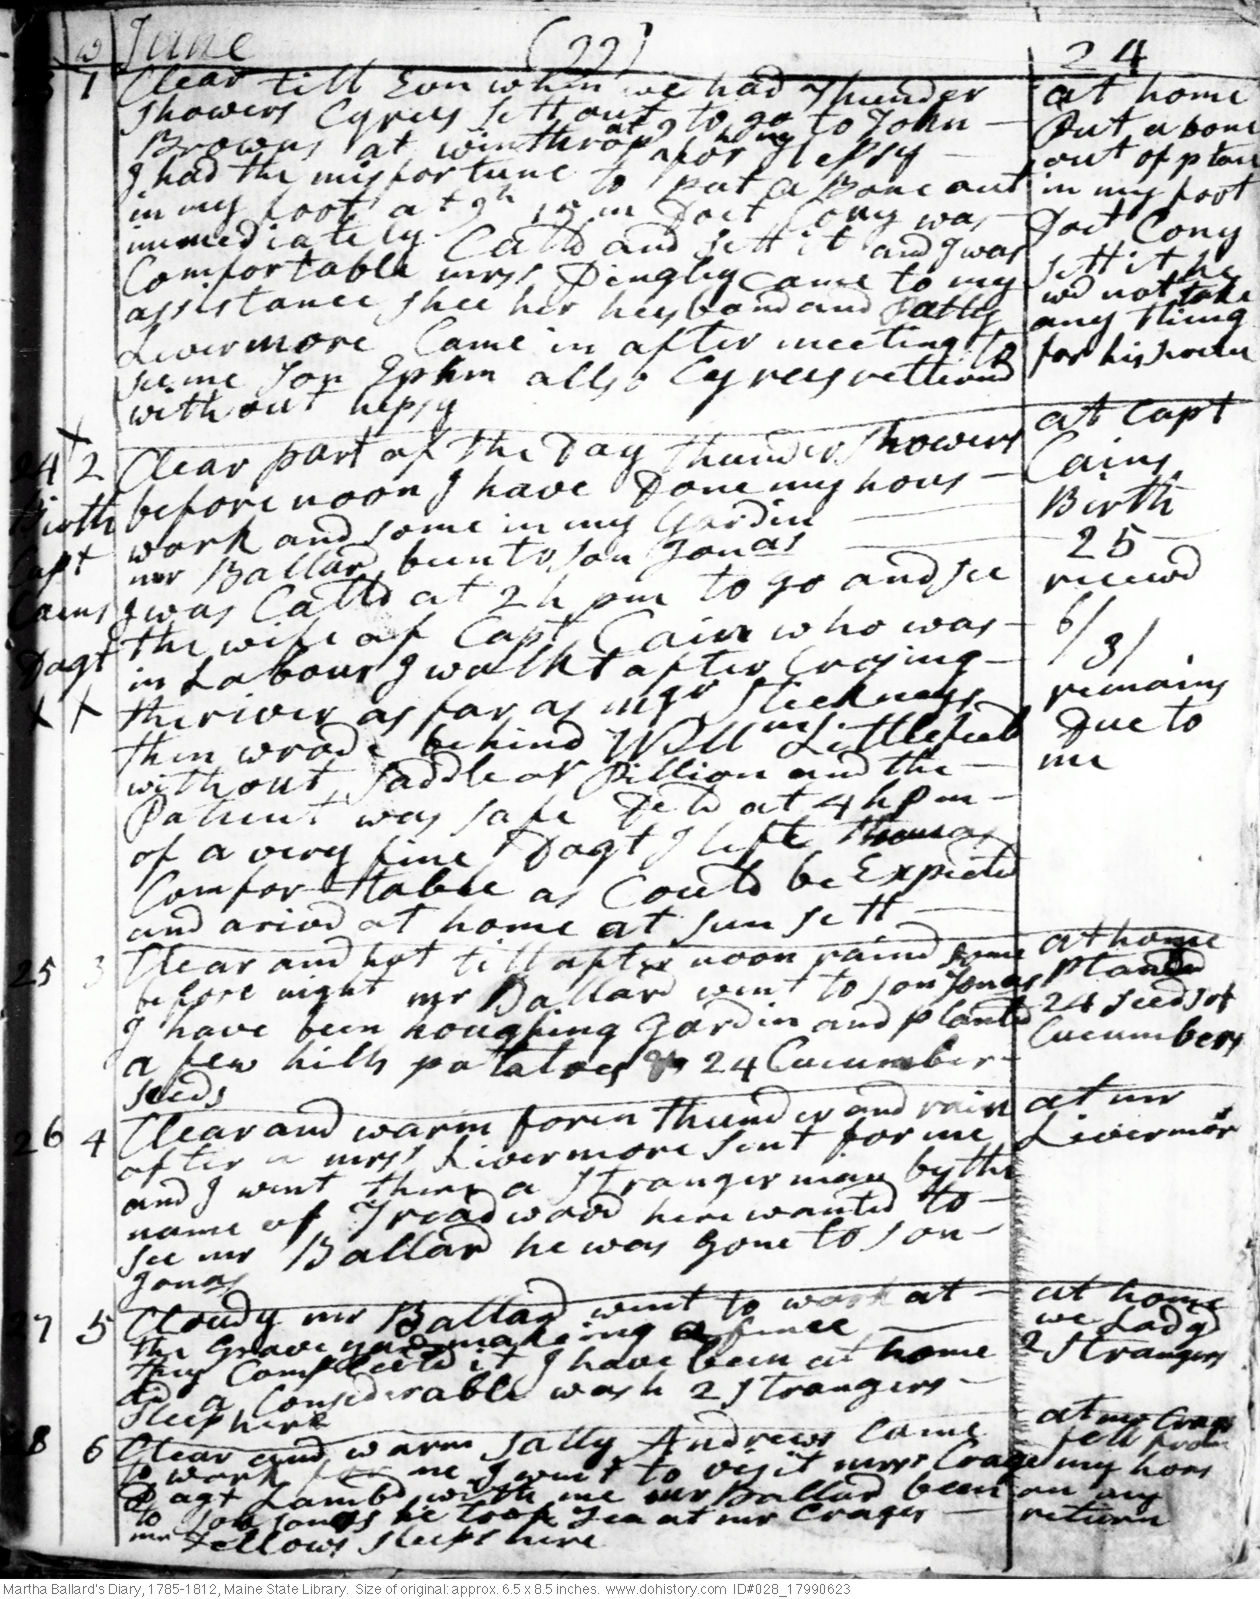 June (22) 24
23 1 Clear till Evn when we had Thunder
showers Cyrus sett out to go to John
Browns at winthrop for Hepsy
I had the misfortune to put a Bone out
in my foot at 9h pm Doct Cony was
immediately Calld and sett it and I was
Comfortable mrs Dingley came to my
assistance shee her husband and Patty
Livermore Came in after meeting to
see me son Ephm allso Cyrus returnd
without hepsy
at home
Put a bone
out of place
in my foot
Doct Cony
sett it he
wd not take
any thing
for his trouble
24 2 Clear part of the Day thunder showers
before noon I have Done my hous
work and some in my Gardin
mr Ballard been to son Jonas
I was Calld at 2 h pm to go and see
the wife of Capt Cain who was
in Labour I walkt after Crosing
the river as far as mr Stickneys
then wrode behind Willm Littlefield
without saddle or Pillion and the
Patient was safe Deld at 4 h pm
of a very fine Dagt I left them as
Comforttable as Could be Expected
and arivd at home at sun sett
Birth
Capt
Cains
Dagt
X X
at Capt
Cains
Birth
25
receivd
6/
/3/
remains
Due to
me
25 3 Clear and hot till after noon raind some
before night mr Ballard went to son Jonas
I have been houghing gardin and planted
a few hills potatoes & 24 Cucumber
seeds
at home
Planted
24 seeds of
Cucumbers
26 4 Clear and warm foren thunder and rain
after n mrss Livermore sent for me
and I went there a stranger man by the
name of Treadwood here wanted to
see mr Ballard he was gone to son
Jonas
at mr
Livermor
27 5 Cloudy mr Ballard went to work at
the Grave yard makeing a fence
they Compleetd it I have been at home
did a Considerable wash 2 strangers
sleep here
at home
we Ladgd
2 strangers
28 6 Clear and warm Sally Andrews Came
to work for me I went to visit mrss Crage
Dagt Lambd with me mr Ballard been
to son Jonass he took Tea at mr Crages
mr Fellows sleeps here
at mr Crages
fell from
my hors
on my
return
Martha Ballard's Diary, 1785-1812, Maine State Library. Size of original: approx. 6.5 x 8.5 inches. www.dohistory.com ID#028_17990623